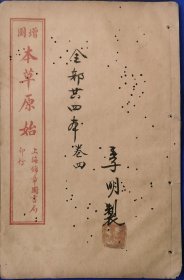 增圖
本草原始
上海錦章圖書局
印行
全部共四本卷四
季明製